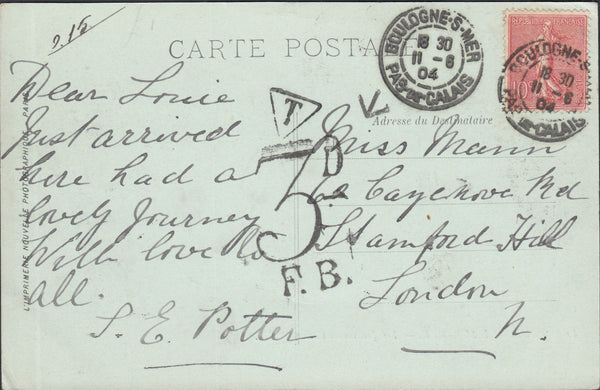 9.15
CARTE POSTALE
BOULOGNE-S-MER
18 30
11 - 6
04
PAS-DE-CALAIS
BOULOGNE-S
18 30
11 - 6
04
PAS-DE-CALAIS
10
Dear Louie
Just arrived
here had a
lovely Journey
With love to
all.
S. E. Potter
T
3 D.
F.B.
Adresse du Destinataire
Miss Mann
Cazenove Rd
Stamford Hill
London
N.
L'IMPRIMERIE NOUVELLE PHOTOGRAPHIQUE - PARIS